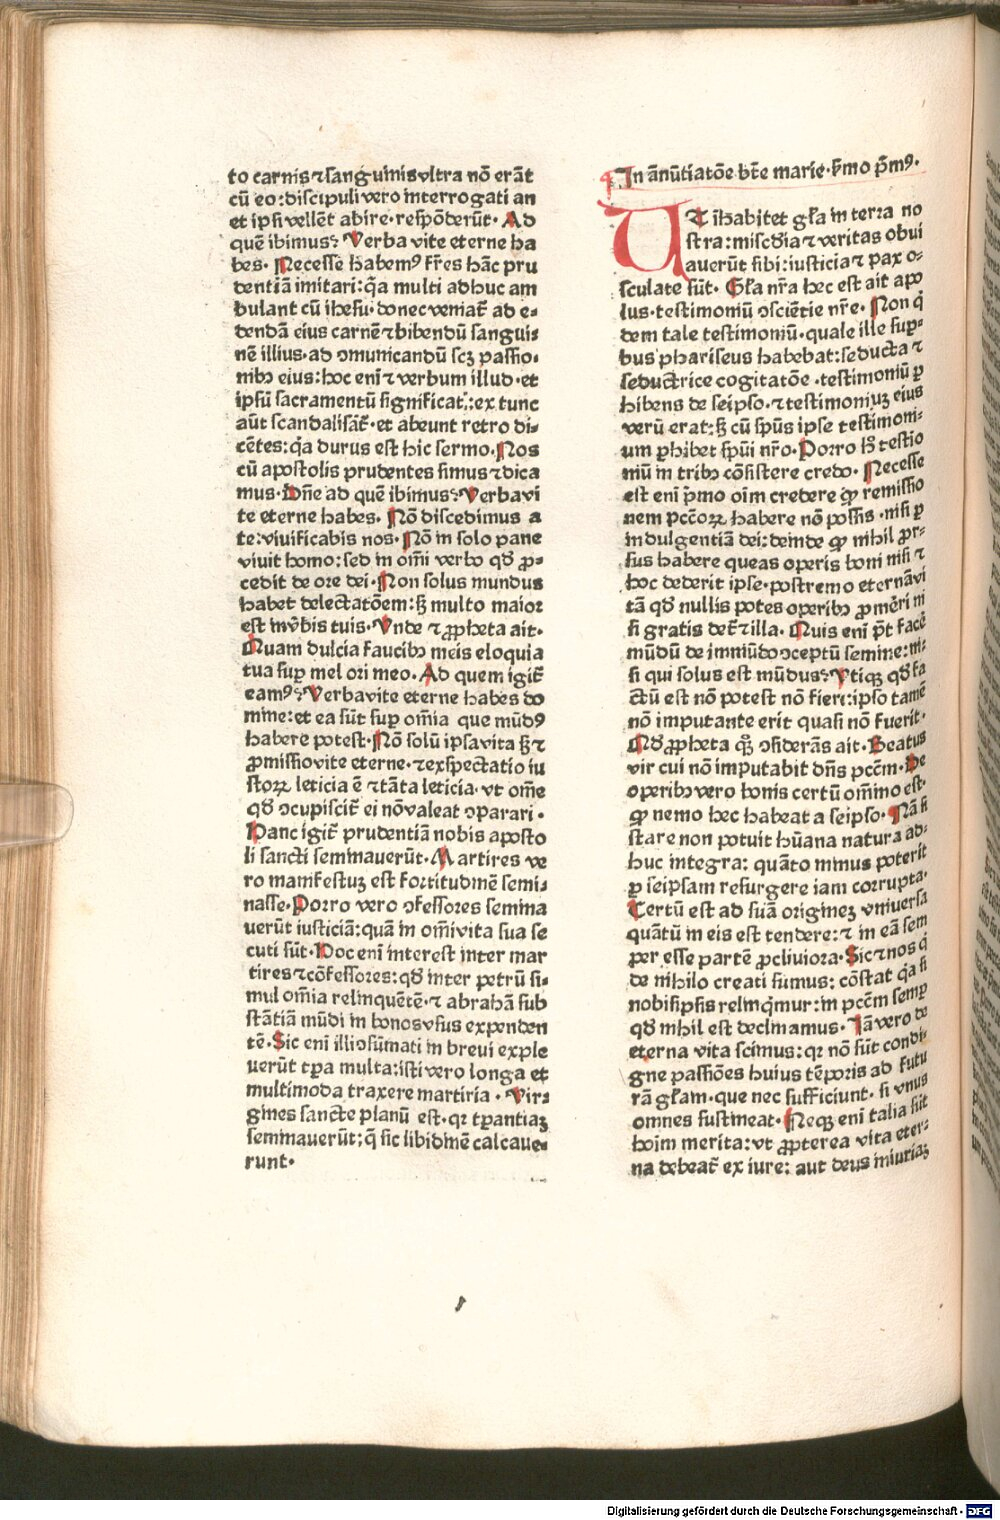 to carnis ⁊ sanguinis vltra nō erāt
cū eo: discipuli vero interrogati an
et ipsi vellēt abire· respōderūt· Ad
quē ibimus? Verba vite eterne ha
bes· Necesse habemꝰ fr̄es hāc pru
dentiā imitari: q̄a multi adhuc am
bulant cū ihesu· donec veniat̄ ad e⸗
dendā eius carnē ⁊ bibendū sangui⸗
nē illius· ad ꝯmunicandū scꝫ passio⸗
nibꝫ eius: hoc eni ⁊ verbum illud· et
ipsū sacramentū significat: ex tunc
aūt scandalisāt̄· et abeunt retro di⸗
cētes: q̄a durus est hic sermo· Nos
cū apostolis prudentes simus ⁊ dica
mus· Dn̄e ad quē ibimus? Verba vi
te eterne habes· Nō discedimus a
te: viuificabis nos· Nō in solo pane
viuit homo: sed in om̄i verbo qd̄ p̱⸗
cedit de ore dei· Non solus mundus
habet delectatōem: sꝫ multo maior
est in v̄bis tuis· Vnde ⁊ ꝓpheta ait·
Quam dulcia faucibꝫ meis eloquia
tua suꝑ mel ori meo· Ad quem igit̄
eamꝰ? Verba vite eterne habes do
mine: et ea sūt suꝑ om̄ia que mūdꝰ
habere potest· Nō solū ipsa vita sꝫ ⁊
ꝓmissio vite eterne· ⁊ exspectatio iu
stoꝝ leticia ē ⁊ tāta leticia· vt om̄e
qd̄ ꝯcupiscit̄ ei nō valeat ꝯparari·
Hanc igit̄ prudentiā nobis aposto
li sancti seminauerūt· Martires ve
ro manifestuꝫ est fortitudinē semi⸗
nasse· Porro vero ꝯfessores semina
uerūt iusticiā: quā in om̄i vita sua se
cuti sūt· Hoc eni interest inter mar
tires ⁊ cōfessores: qd̄ inter petrū si⸗
mul om̄ia relinquētē· ⁊ abrahā sub
stātiā mūdi in bonos vsus expenden
tē· Sic eni illi ꝯsūmati in breui exple
uerūt tp̄a multa: isti vero longa et
multimoda traxere martiria· Vir⸗
gines sancte planū est· qꝛ tp̄antiaꝫ
seminauerūt; q̄ sic libidinē calcaue⸗
runt·
In ānūtiatōe bt̄e marie· s̄mo p̄mꝰ·
UT ihabitet gl̄a in terra no
stra: misc̄dia ⁊ veritas obui
auerūt sibi: iusticia ⁊ pax o⸗
sculate sūt· Gl̄a nr̄a hec est ait apo
lus· testimoniū ꝯsciētie nr̄e· Non q̇
dem tale testimoniū· quale ille suꝑ⸗
bus phariseus habebat: seducta ⁊
seductrice cogitatōe· testimoniū ꝑ
hibens de seipso· ⁊ testimoniuꝫ eius
verū erat: sꝫ cū sp̄us ipse testimoni⸗
um ꝑhibet sp̄ui nr̄o· Porro h̄ testio
niū in tribꝫ cōsistere credo· Necesse
est eni p̄mo oīm credere ꝙ remissio
nem pctōꝝ habere nō possis· nisi ꝑ
indulgentiā dei: deinde ꝙ nihil ꝓr⸗
sus habere queas operis boni nisi ⁊
hoc dederit ipse· postremo eternā vi
tā qd̄ nullis potes operibꝫ ꝓmēri ni
si gratis det̄ ⁊ illa· Quis eni p̄t facē
mūdū de imūdo ꝯceptū semine: ni⸗
si qui solus est mūdus? Vtiqꝫ qd̄ fa
ctū est nō potest nō fieri: ipso tamē
nō imputante erit quasi nō fuerit·
Qd̄ ꝓpheta qꝫ ꝯsiderās ait· Beatus
vir cui nō imputabit dn̄s pctm̄· De
operibꝫ vero bonis certū om̄imo est·
ꝙ nemo hec habeat a seipso· Nā si
stare non potuit hūana natura ad⸗
huc integra: quāto minus poterit
ꝑ seipsam resurgere iam corrupta·
Certū est ad suā origineꝫ vniuersa
quātū in eis est tendere: ⁊ in eā sem
per esse partē ꝓcliuiora· Sic ⁊ nos q̇
de nihilo creati sumus: cōstat q̄a si
nobisipsis relinq̄mur: in pctm̄ semꝑ
qd̄ nihil est declinamus· Iā vero de
eterna vita scimus: qꝛ nō sūt condi⸗
gne passiōes huius tēporis ad futu
rā gl̄am· que nec sufficiunt· si vnus
omnes sustineat· Neqꝫ eni talia sūt
hoīm merita: vt ꝓpterea vita eter⸗
na debeat̄ ex iure: aut deus iniuriaꝫ
Digitalisierung gefördert durch die Deutsche Forschungsgemeinschaft - DFG